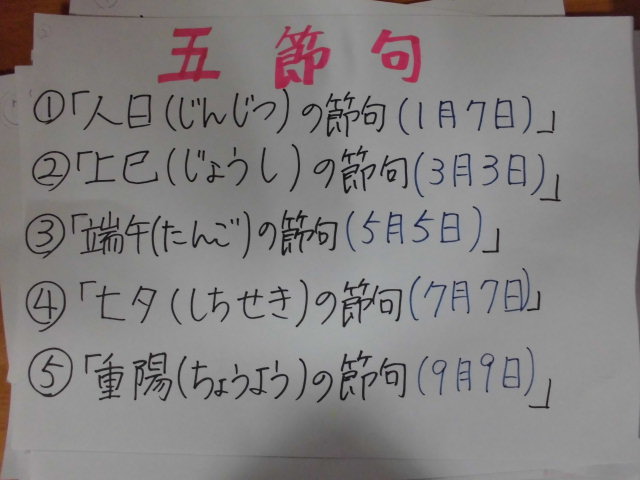 五節句
①「人日(じんじつ)の節句(1月7日)」
②「上巳(じょうし)の節句(3月3日)」
③「端午(たんご)の節句(5月5日)」
④「七夕(しちせき)の節句(7月7日)」
⑤「重陽(ちょうよう)の節句(9月9日)」